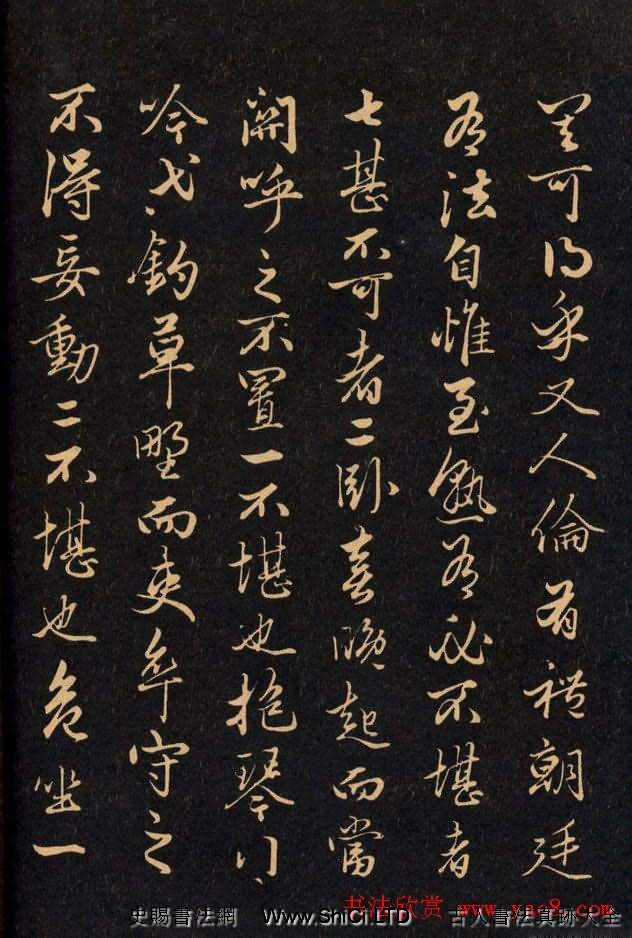 其可得乎又人倫有禮朝廷
有法自惟至熟有必不堪者
七甚不可者二卧喜晚起而當
關呼之不置一不堪也抱琴行
吟弋釣草野而吏卒守之
不得妄動二不堪也危坐一
书法欣赏 www.yac8.com
史賜書法網 Www.ShiCi.LTD 古人書法真跡大全